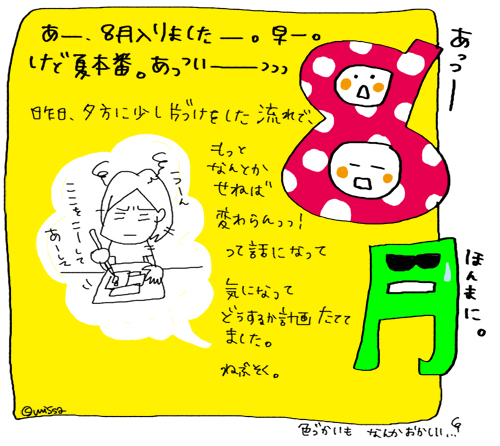 あー、8月入りましたー。早ー。
けど夏本番。あっついーーっっっ
昨日、夕方に少し片づけをした流れで、
もっと
なんとか
せねば
変わらんっっ!
って話になって
気になって
どうするか計画たてて
ました。
ねぶそく。
うーん
ここをこーして
あーして
あっつー
8
月
ほんまに。
色づかいも なんかおかしい…
@missa